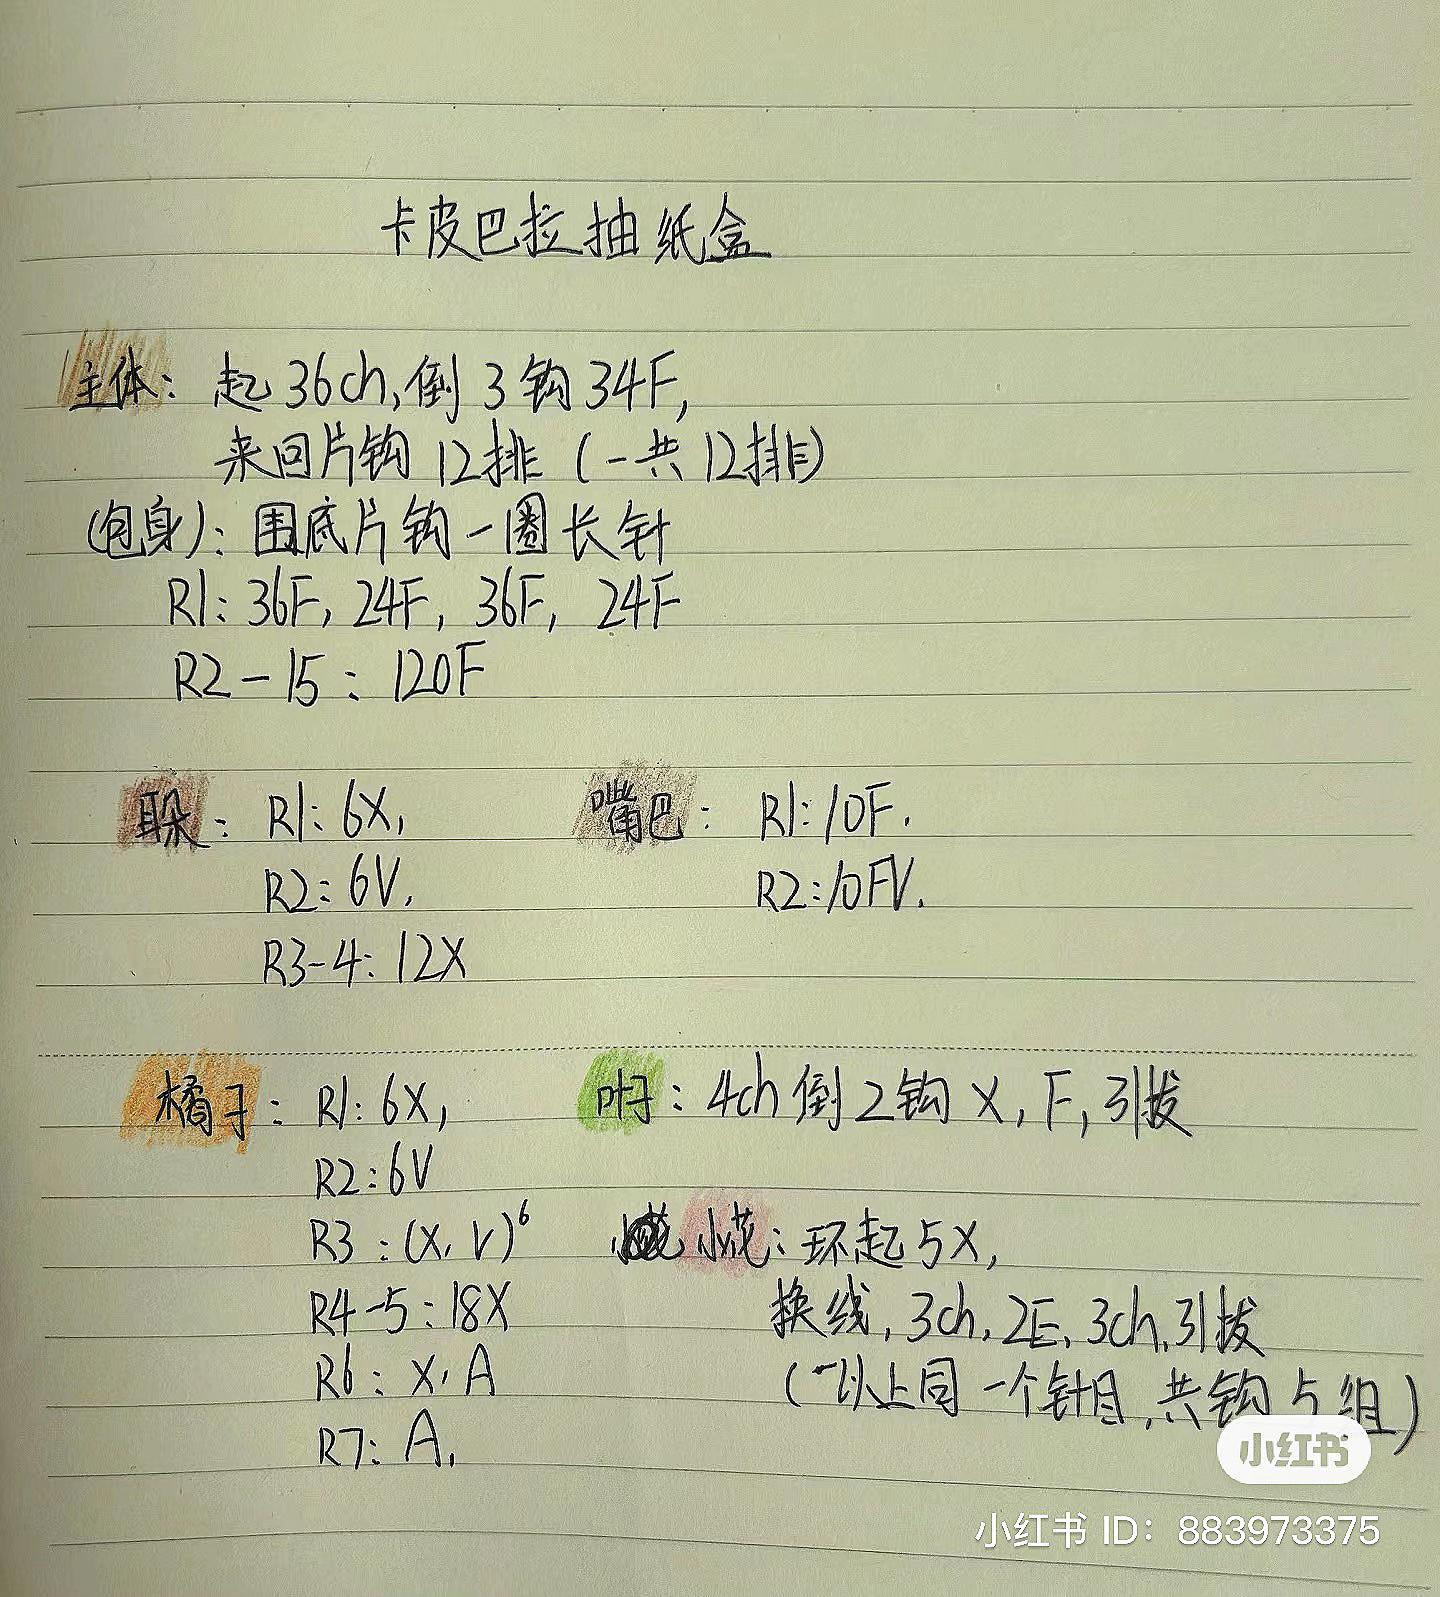 卡皮巴拉抽纸盒
主体：起36ch,倒3钩34F,
来回片钩12排（一共12排）
（包身）：围底片钩一圈长针
R1：36F，24F，36F，24F
R2-15：120F
耳朵：R1：6X,
R2：6V.
R3-4：12X
嘴巴：R1：10F.
R2：10FV.
橘子：R1：6X,
R2：6V
R3：(X, V)⁶
R4-5：18X
R6：X, A
R7：A.
叶子：4ch倒2钩X, F, 引拔
小花：环起5X,
换线, 3ch, 2E, 3ch, 引拔
（以上同一个针目, 共钩5组）
小红书
小红书 ID：883973375